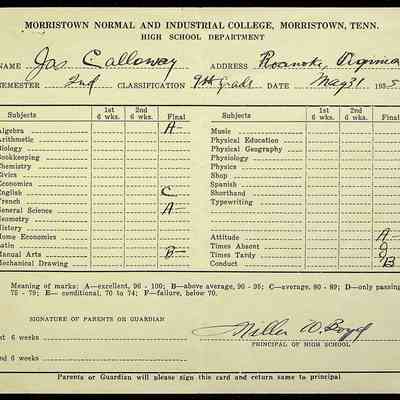 MORRISTOWN NORMAL AND INDUSTRIAL COLLEGE, MORRISTOWN, TENN.
HIGH SCHOOL DEPARTMENT
NAME Jas Calloway ADDRESS Roanoke, Virginia
SEMESTER 2nd CLASSIFICATION 9th Grade DATE May 31 193
Subjects 1st 6 wks. 2nd 6 wks. Final Subjects 1st 6 wks. 2nd 6 wks. Final
Algebra A- Music
Arithmetic Physical Education
Biology Physical Geography
Bookkeeping Physiology
Chemistry Physics
Civics Shop
Economics Spanish
English C Shorthand
French Typewriting
General Science A-
Geometry
History
Home Economics Attitude A-
Latin Times Absent
Manual Arts B- Times Tardy
Mechanical Drawing Conduct B
Meaning of marks: A—excellent, 96 - 100; B—above average, 90 - 95; C—average, 80 - 89; D—only passing
75 - 79; E— conditional, 70 to 74; F—failure, below 70.
SIGNATURE OF PARENTS OR GUARDIAN
Miller W. Boyd
PRINCIPAL OF HIGH SCHOOL
1st 6 weeks
2nd 6 weeks
Parents or Guardian will please sign this card and return same to principal